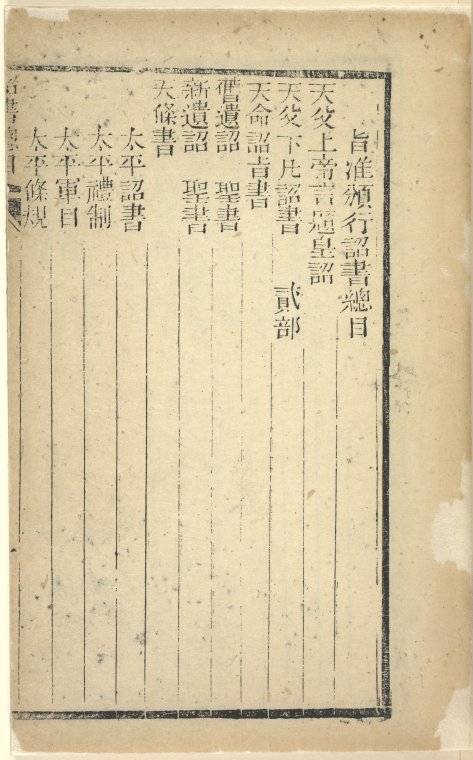 旨准頒行詔書總目
天父上帝言題皇詔
天父下凡詔書 貳部
天命詔旨書
舊遺詔 聖書
新遺詔 聖書
天條書
太平詔書
太平禮制
太平軍目
太平條規
詔書總目